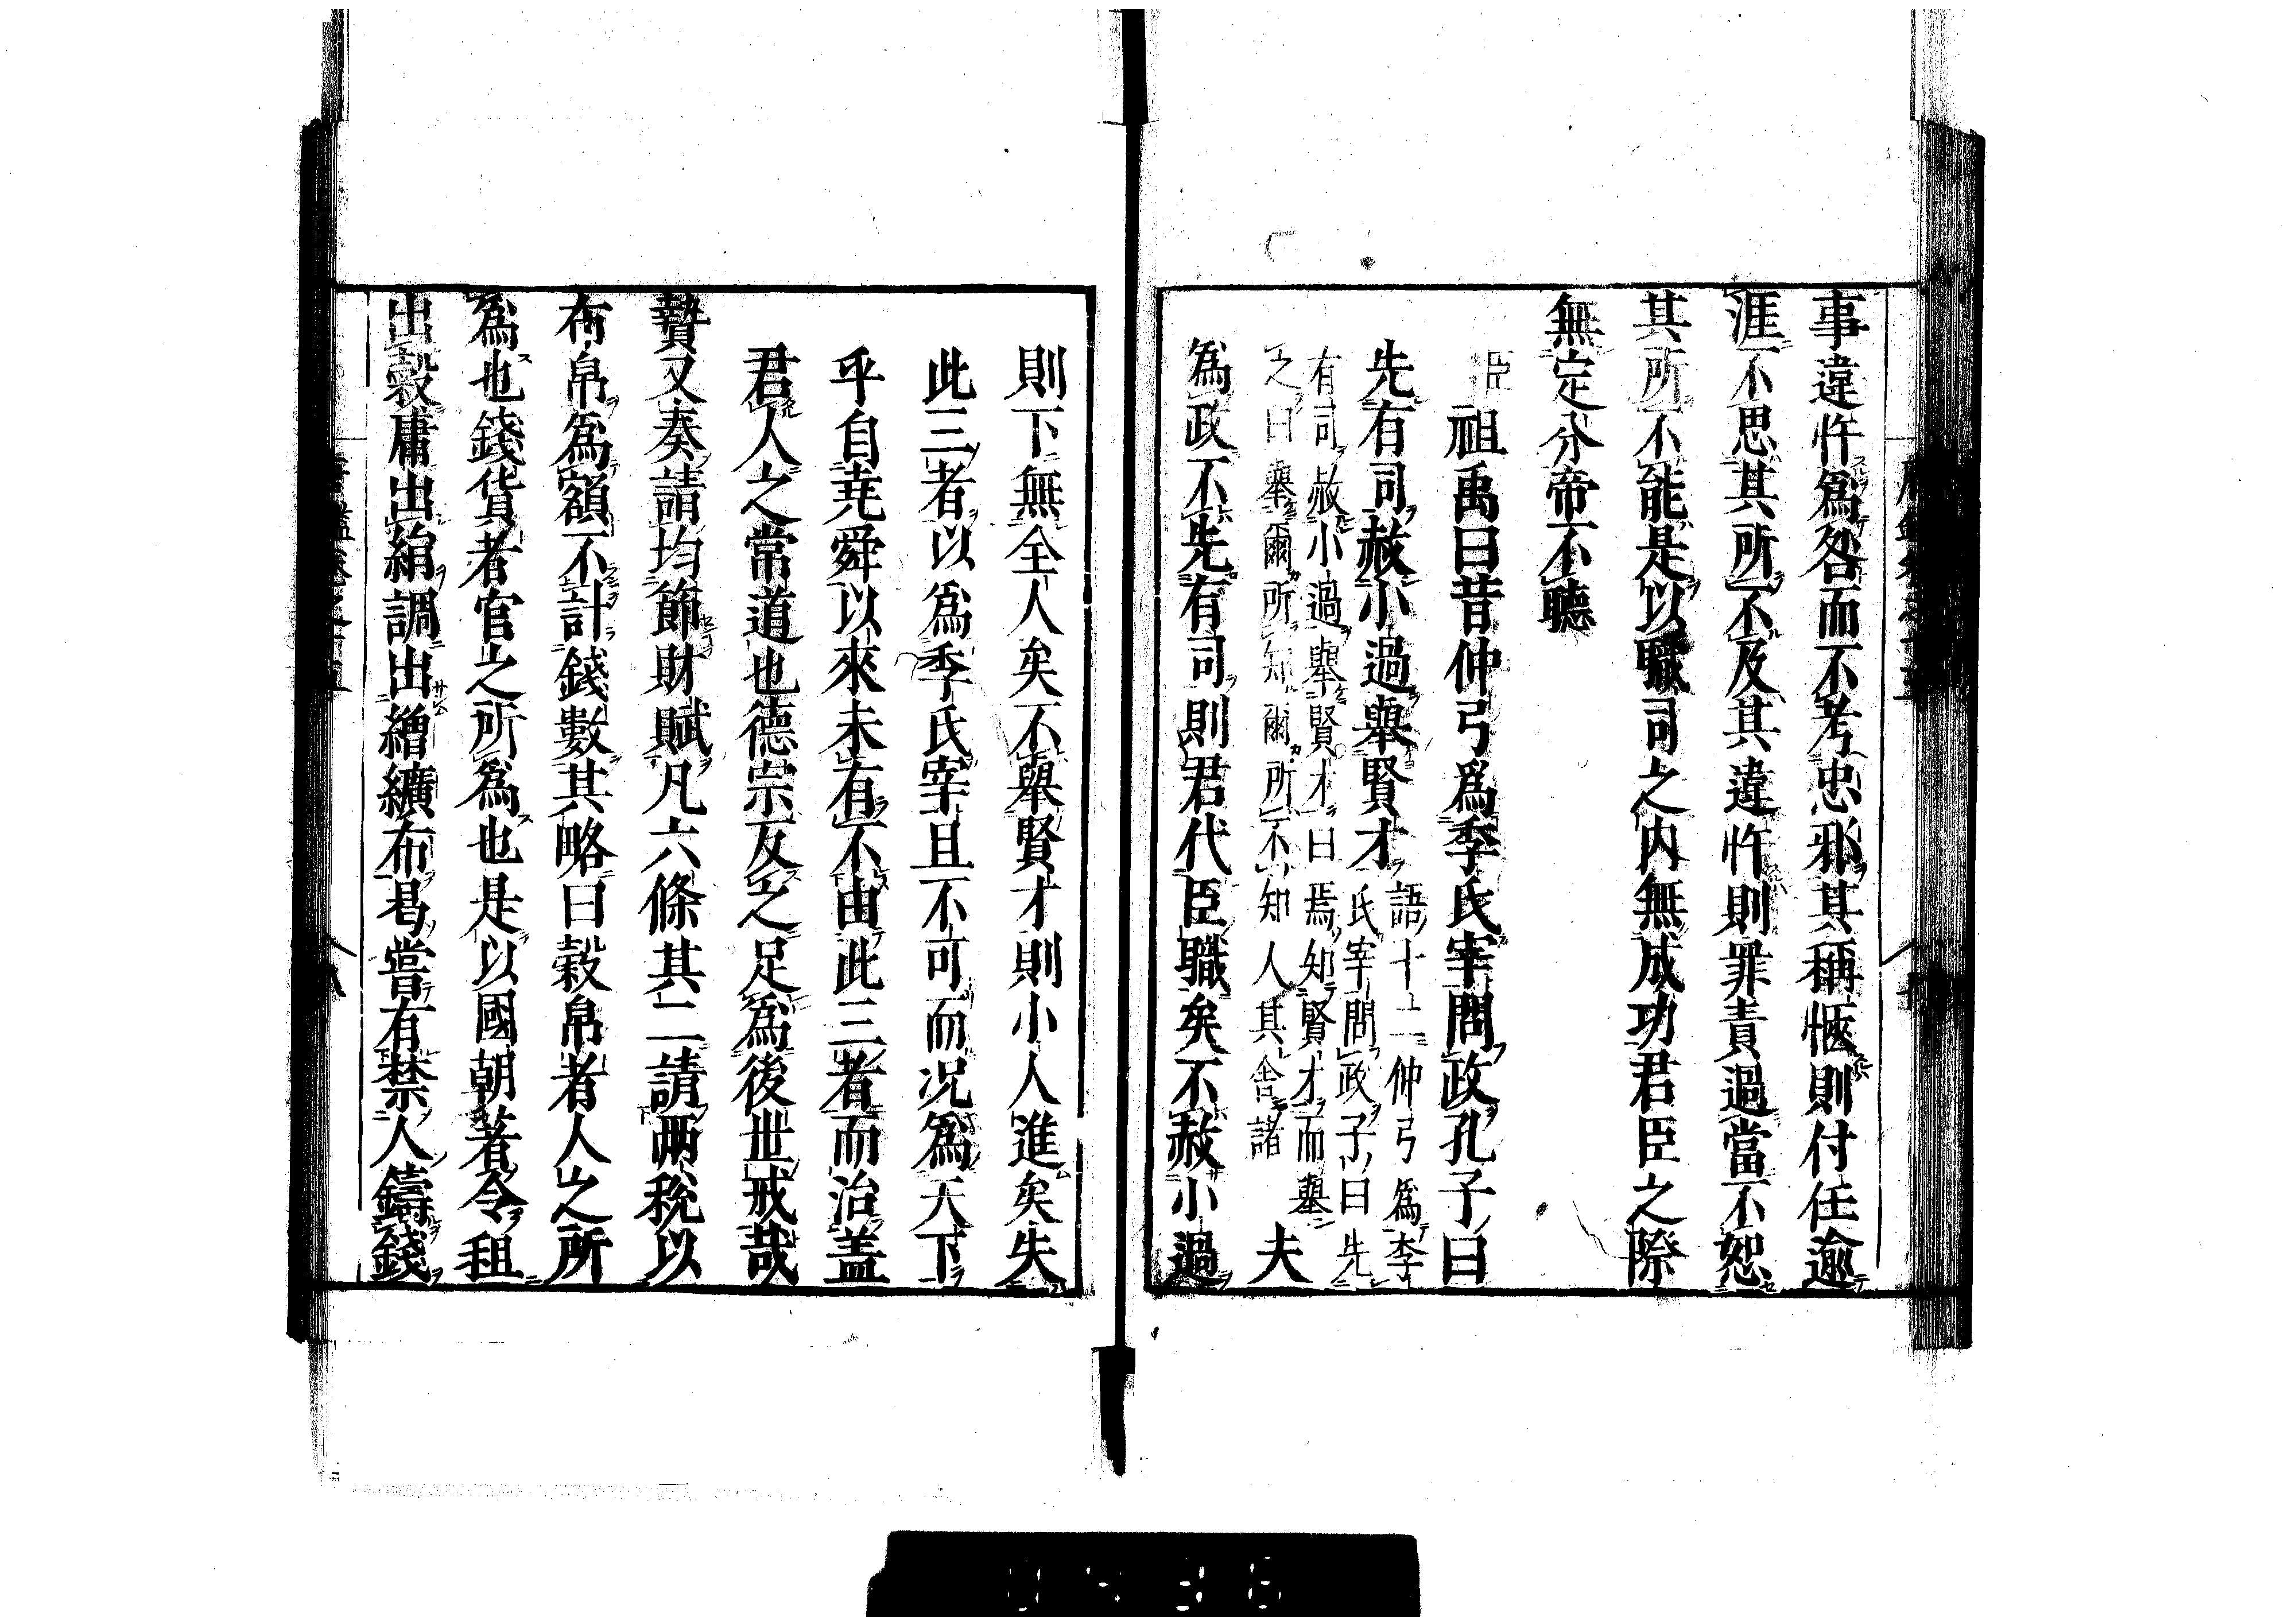 事違忤爲咎而不考忠邪其稱愜則付任逾
涯不思其所不及其違忤則罪責過當不恕
其所不能是以職司之内無成功君臣之際
無定分帝不聽
臣祖禹曰昔仲弓爲季氏宰問政孔子曰
先有司赦小過舉賢才語十二仲弓爲季
氏宰問政子曰先
有司赦小過舉賢才曰焉知賢才而舉
之曰舉爾所知爾所不知人其舍諸夫
爲政不先有司則君代臣職矣不赦小過
則下無全人矣不舉賢才則小人進矣失
此三者以爲季氏宰且不可而况爲天下
乎自堯舜以來未有不由此三者而治盖
君人之常道也德宗反之足爲後世戒哉
贄又奏請均節財賦凡六條其二請兩稅以
布帛爲額不計錢數其略曰穀帛者人之所
爲也錢貨者官之所爲也是以國朝著令租
出穀庸出絹調出繒纊布曷嘗有禁人鑄錢